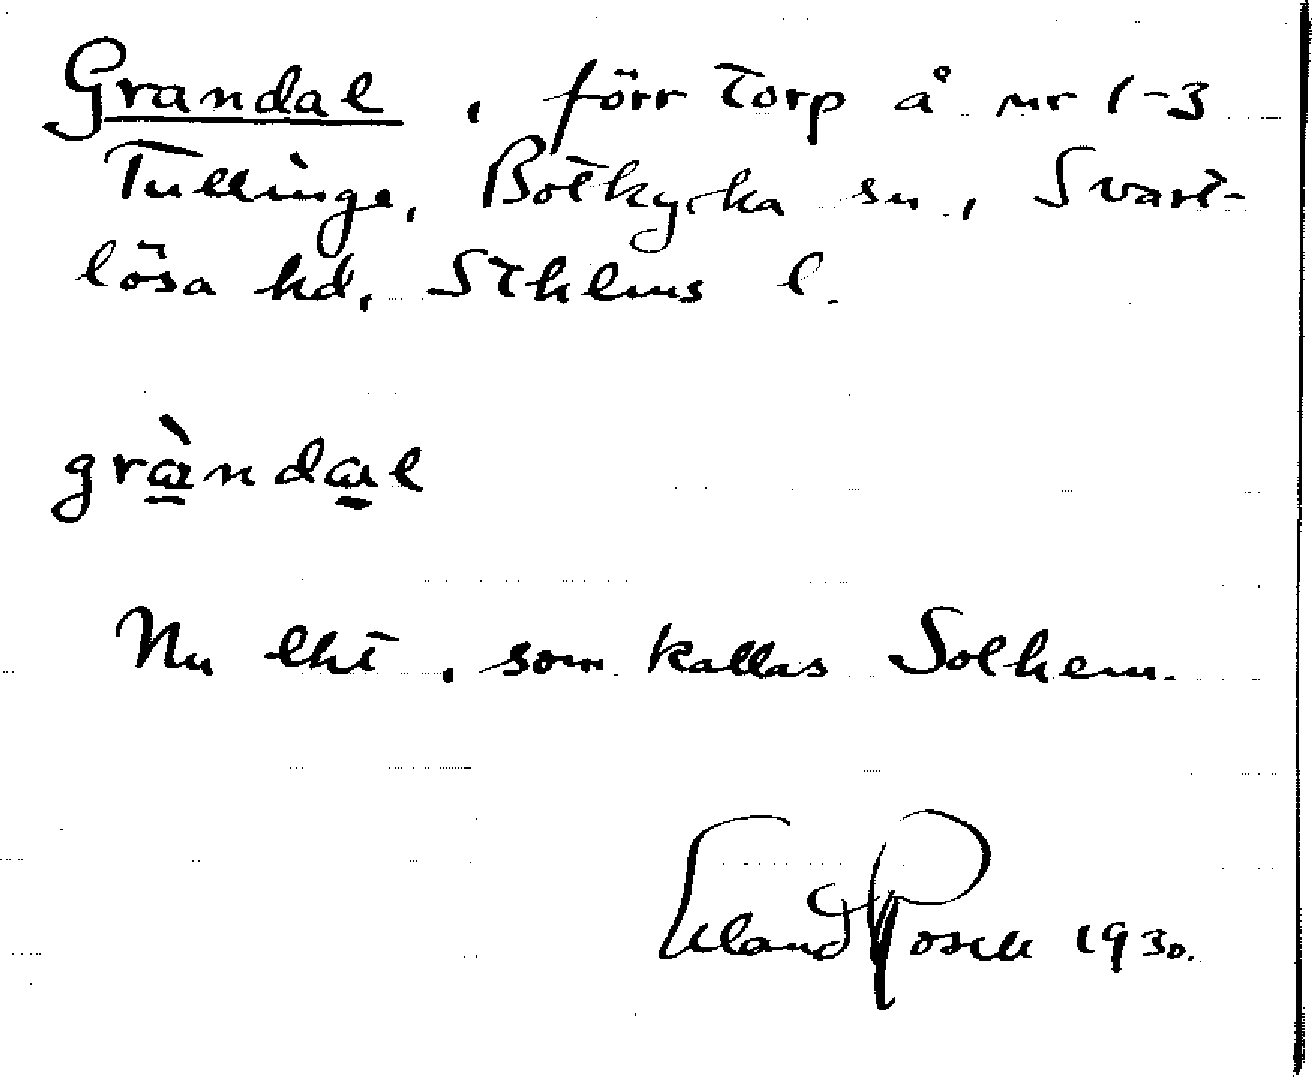 Grandal, förr torp å nr 1-3
Tullinge, Botkyrka sn., Svart-
lösa hd, Sthlms l.
gràndal
Nu lht, som kallas Solhem.
Erland Rosell 1930.